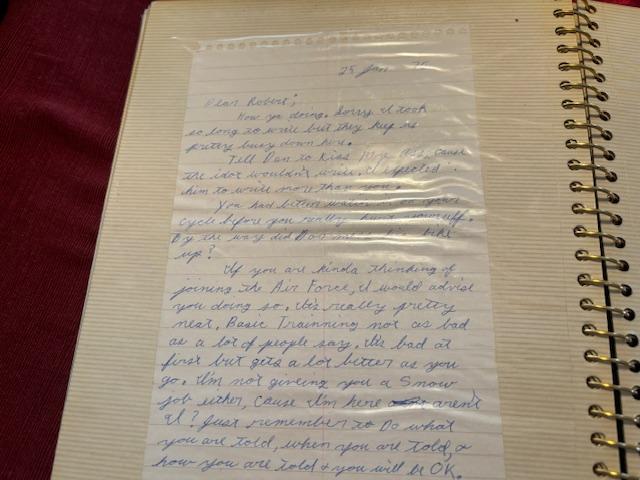 25 Jan 76
Dear Robert;
How ya doing. Sorry I took
so long to write but they keep us
pretty busy down here.
Tell Dan to Kiss My Ass, cause
the idot wouldn't write. I expected
him to write more than you.
You had better watch
cycle before you really hurt yourself.
By the way did Dan his bike
up?
If you are kinda thinking of
joining the Air Force, I would advise
you doing so. It's really pretty
neat. Basic Trainning not as bad
as a lot of people say. It's bad at
first but gets a lot better as you
go. I'm not giving you a Snow
job either, cause I'm here aren't
I? Just remember to Do what
you are told, when you are told, &
how you are told & you will be OK.